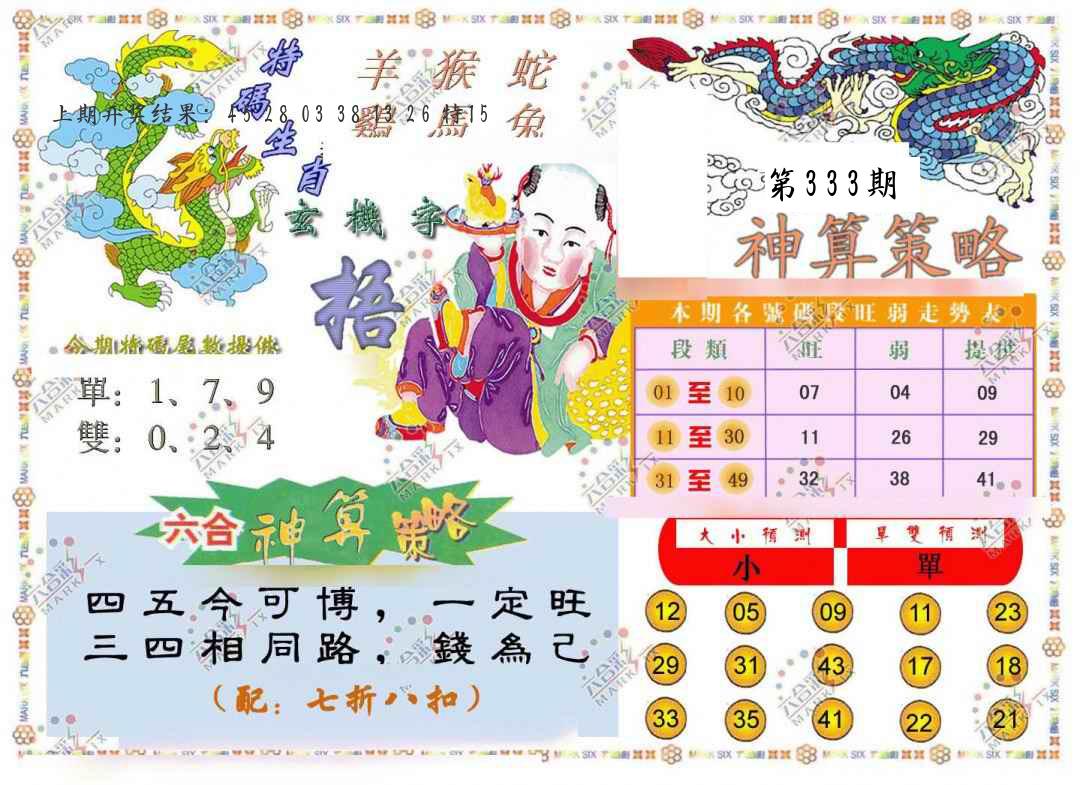 特碼生肖
羊 猴 蛇
鷄 馬 兔
上期开奖结果: 45 28 03 38 13 26 特15
第333期
玄機字
捂
神算策略
今期特碼尾數提供
單: 1、7、9
雙: 0、2、4
本期各號碼段旺弱走勢表
段類 旺 弱 提供
01 至 10 07 04 09
11 至 30 11 26 29
31 至 49 32 38 41
六合 神算策略
四五今可博, 一定旺
三四相同路, 錢為己
(配: 七折八扣)
大小預測 單雙預測
小 單
12 05 09 11 23
29 31 43 17 18
33 35 41 22 21